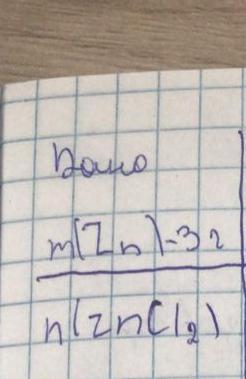 Дано
m(Zn)-3г
n(ZnCl₂)